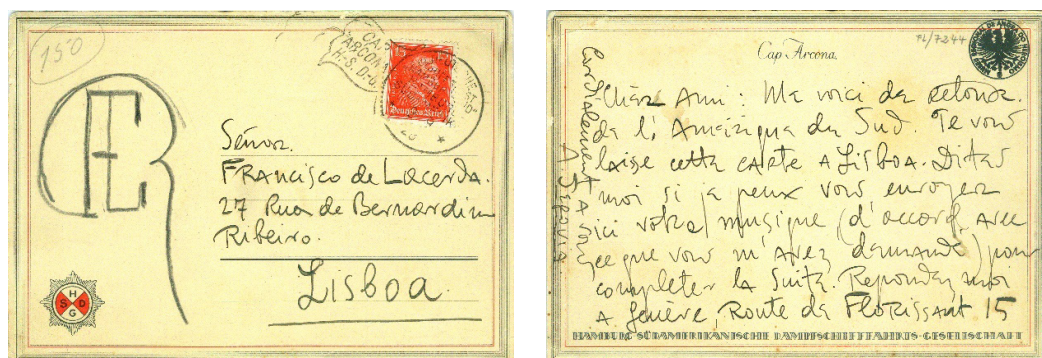 150
CAP
ARCONA
H.S.D.G.
15
Deutsches Reich
Señor.
FRANCISCO de LACERDA.
27 Rua de BERNARDIM
Ribeiro.
Lisboa.
H
S D
G
Cap Arcona
PL/7244
Chèr Ami: Me voici de retour.
de l'Amerique du Sud. Te vous
laisse cette CARTE A LisboA. Dites
moi si je peux vous envoyer
ici votre musique (d'accord, avec
ce que vous m'avez demandé) pour
completer la Suite. Repondez moi
A Genève, Route de Florissant 15
Cordialement A vous
A. Segovia
HAMBURG-SÜDAMERIKANISCHE DAMPFSCHIFFFAHRTS-GESELLSCHAFT